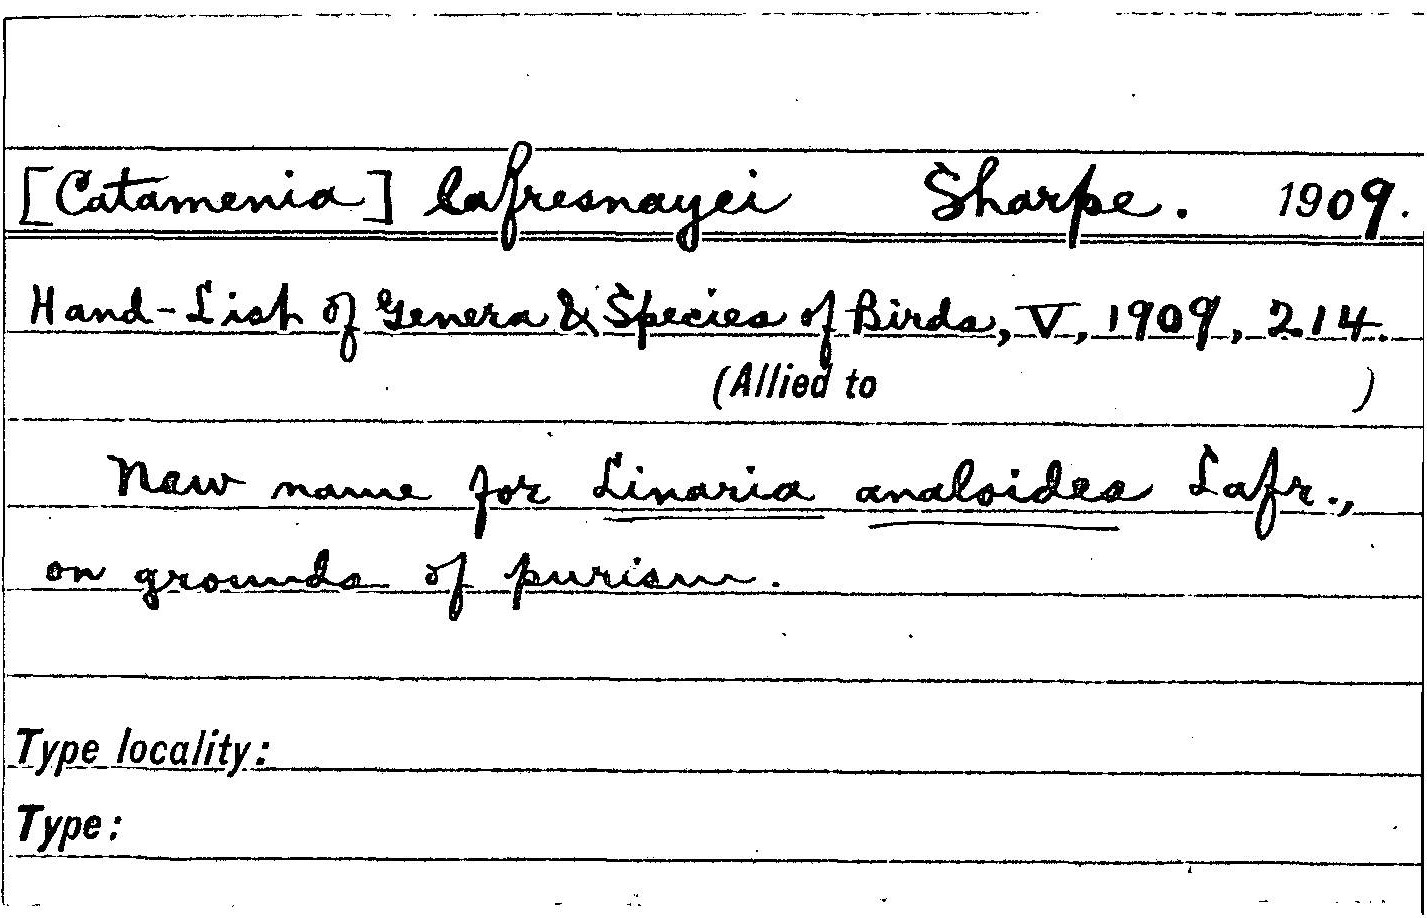 [Catamenia] lafresnayei Sharpe. 1909.
Hand-List of Genera & Species of Birds, V, 1909, 214.
(Allied to )
New name for Linaria analoides Lafr.,
on grounds of purism.
Type locality:
Type: